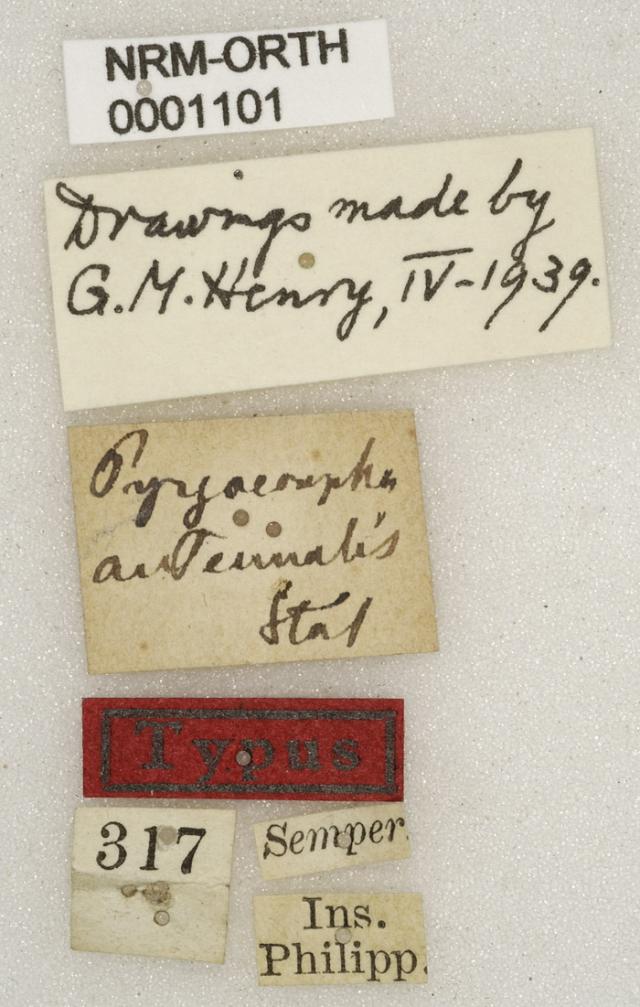 NRM-ORTH
0001101
Drawings made by
G.M.Henry, IV-1939.
antennalis
Stål
Typus
317
Semper.
Ins.
Philipp.